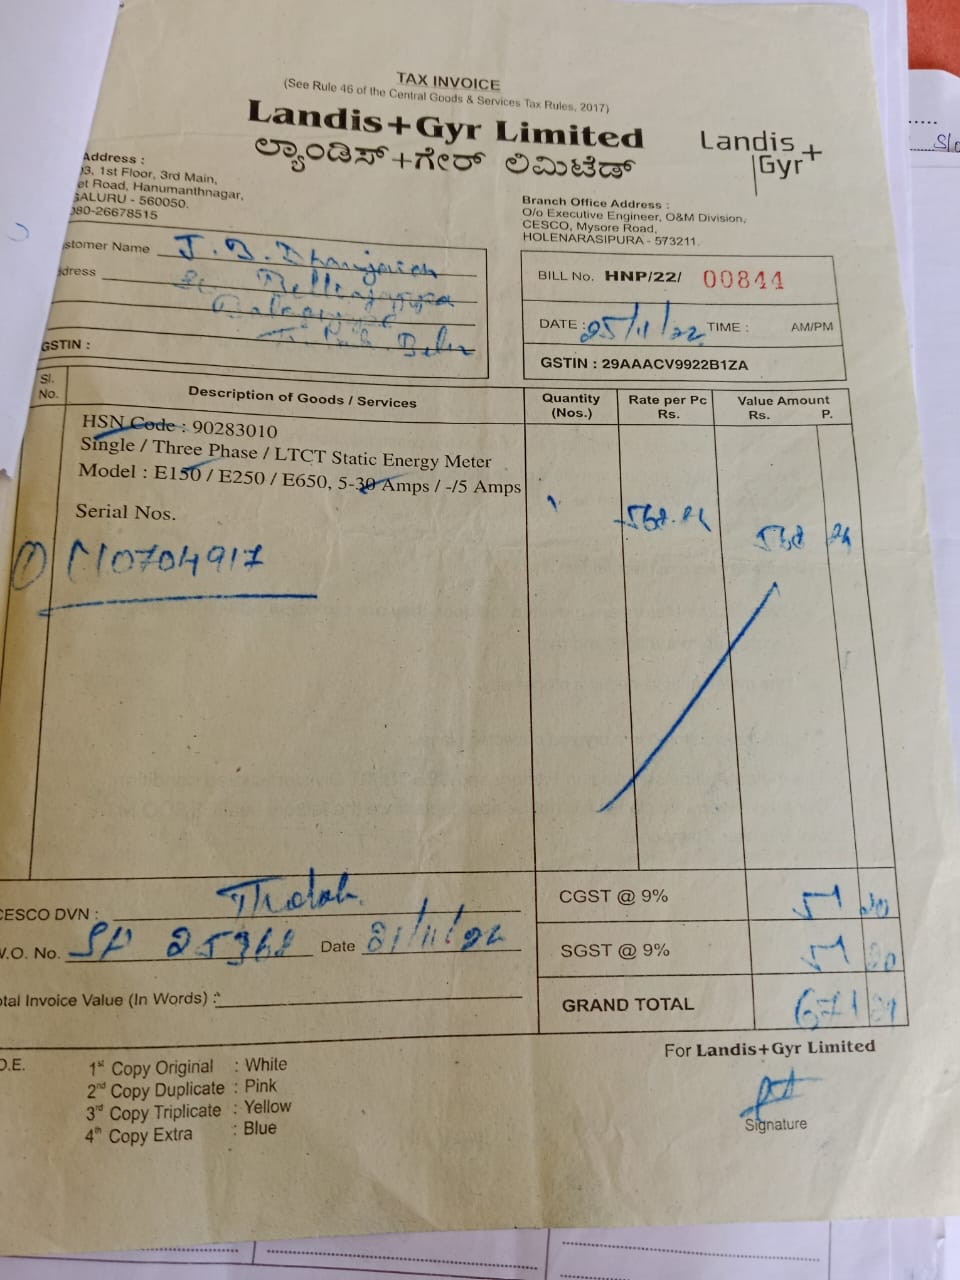 TAX INVOICE
(See Rule 46 of the Central Goods & Services Tax Rules, 2017)
Landis+Gyr Limited
ಲ್ಯಾಂಡಿಸ್+ಗೇರ್ ಲಿಮಿಟೆಡ್
Landis+
Gyr
Address :
3, 1st Floor, 3rd Main,
et Road, Hanumanthnagar,
GALURU - 560050.
080-26678515
Branch Office Address :
O/o Executive Engineer, O&M Division,
CESCO, Mysore Road,
HOLENARASIPURA - 573211.
stomer Name J. B.
dress
GSTIN :
BILL No. HNP/22/ 00844
DATE : 25/11/22 TIME : AM/PM
GSTIN : 29AAACV9922B1ZA
Sl. No. Description of Goods / Services Quantity (Nos.) Rate per Pc Rs. Value Amount Rs. P.
HSN Code : 90283010
Single / Three Phase / LTCT Static Energy Meter
Model : E150 / E250 / E650, 5-30 Amps / -/5 Amps
1 568.84 568 84
Serial Nos.
① 10704917
CESCO DVN :
CGST @ 9% 51 20
V.O. No. SP 25368 Date 21/11/22
SGST @ 9% 51 20
otal Invoice Value (In Words) :
GRAND TOTAL 671
O.E.
1st Copy Original : White
2nd Copy Duplicate : Pink
3rd Copy Triplicate : Yellow
4th Copy Extra : Blue
For Landis+Gyr Limited
Signature